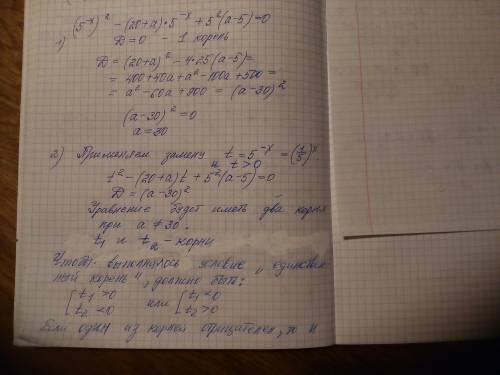 1) (5^-x)^2 - (20+a)·5^-x + 5^2(a-5)=0
D=0 - 1 корень
D = (20+a)^2 - 4·25(a-5)=
= 400+40a+a^2-100a+500 =
= a^2-60a+900 = (a-30)^2
(a-30)^2=0
a=30
2) Применяем замену t=5^-x=(1/5)^x.
и t>0
t^2-(20+a)t+5^2(a-5)=0
D=(a-30)^2
Уравнение будет иметь два корня
при a≠30.
t1 и t2 - корни
Чтобы выполнялось условие "единствен-
ный корень", должно быть:
[t1>0 или [t1<0
[t2<0 [t2>0
Если один из корней отрицателен, то и